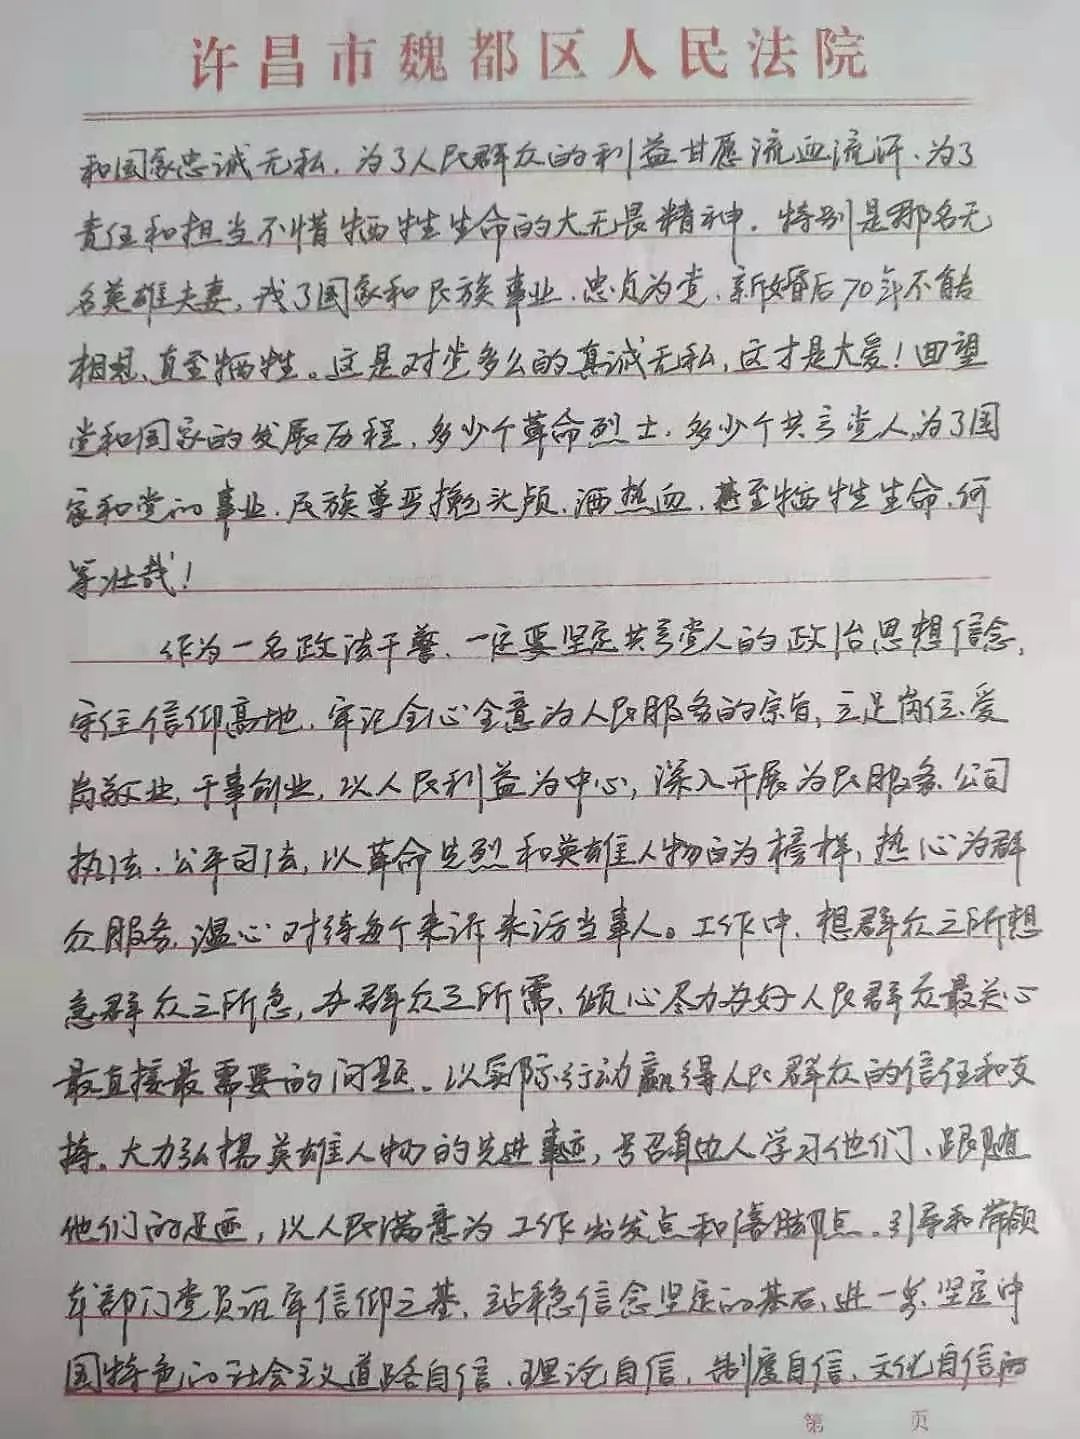 许昌市魏都区人民法院
和国家忠诚无私，为了人民群众的利益甘愿流血流汗、为了
责任和担当不惜牺牲生命的大无畏精神。特别是那名无
名英雄夫妻，为了国家和民族事业、忠贞为党、新婚后70年不能
相想、直至牺牲。这是对党多么的真诚无私，这才是大爱！回望
党和国家的发展历程，多少个革命烈士，多少个共产党人，为了国
家和党的事业、民族尊严抛头颅、洒热血，甚至牺牲生命，何
等壮哉！
作为一名政法干警、一定要坚定共产党人的政治思想信念，
守住信仰高地，牢记全心全意为人民服务的宗旨，立足岗位、爱
岗敬业，干事创业，以人民利益为中心，深入开展为民服务、公司
执法、公平司法，以革命先烈和英雄人物为榜样，热心为群
众服务，温心对待每个来诉来访当事人。工作中，想群众之所想
急群众之所急，办群众之所需，倾心尽力办好人民群众最关心
最直接最需要的问题。以实际行动赢得人民群众的信任和支
持。大力弘扬英雄人物的先进事迹，号召身边人学习他们、跟随
他们的足迹，以人民满意为工作出发点和落脚点。引导和带领
本部门党员筑牢信仰之基，站稳信念坚定的基石，进一步坚定中
国特色的社会主义道路自信、理论自信、制度自信、文化自信的
第 页